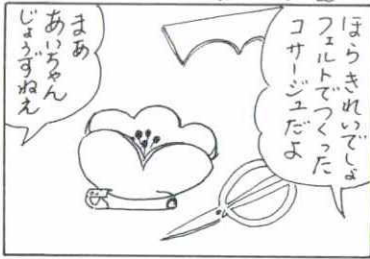 ほらきれいでしょ
フェルトでつくった
コサージュだよ
まあ
あいちゃん
じょうずねえ